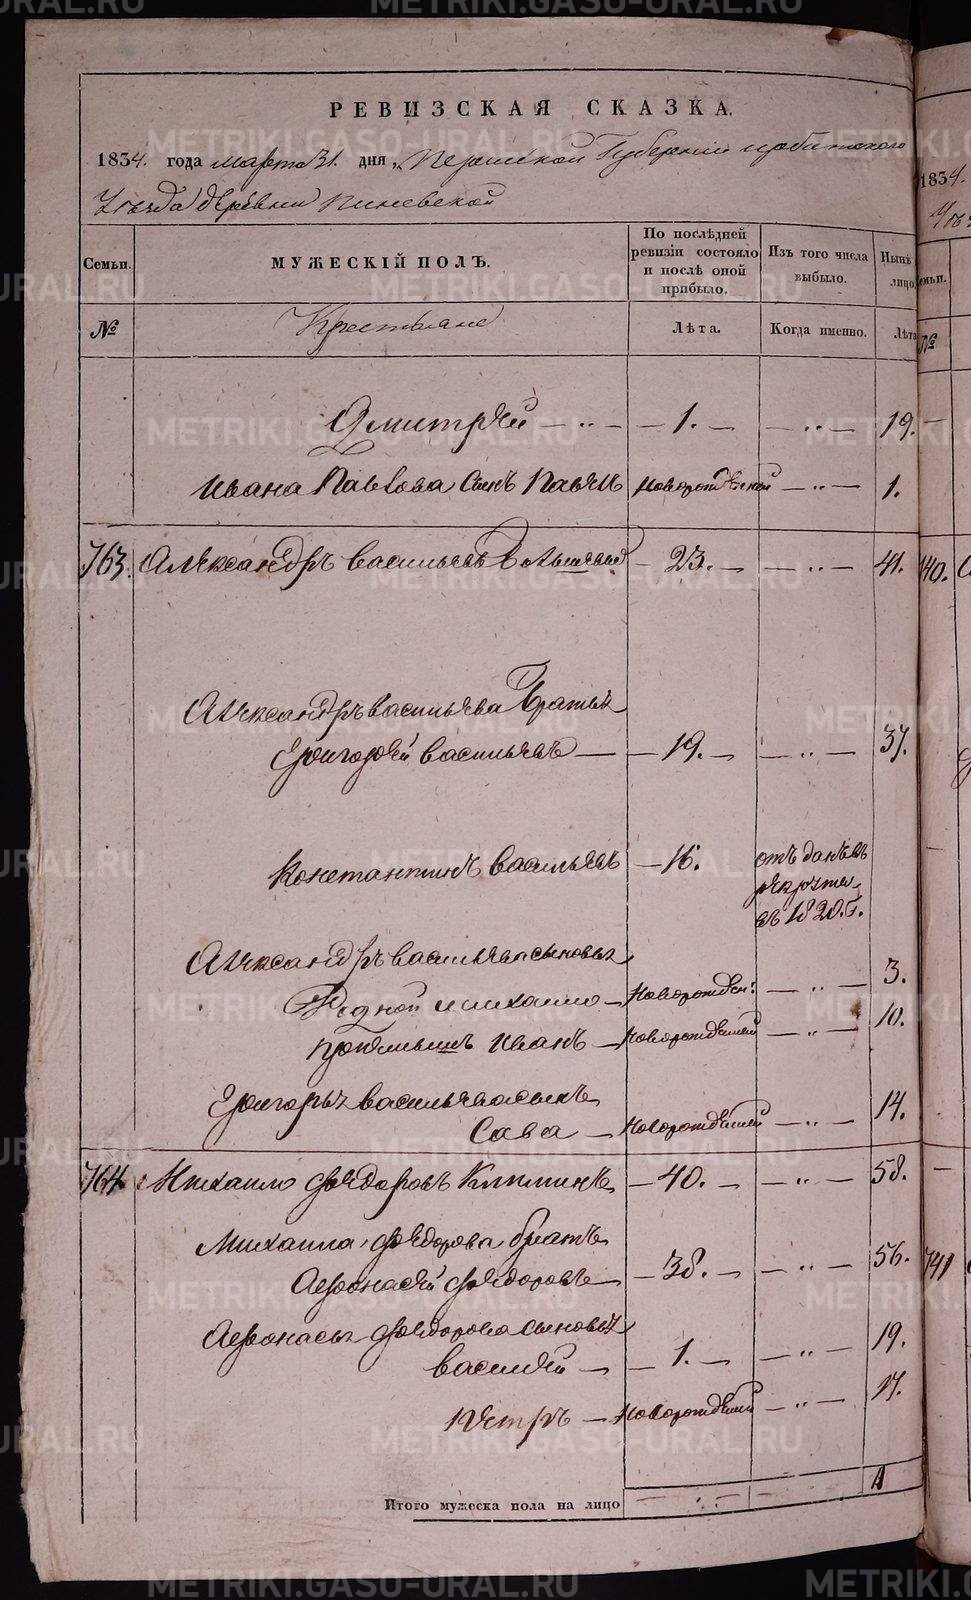 РЕВИЗСКАЯ СКАЗКА.
1834. года марта 31. дня, Пермской Губернии Ирбитского
Уезда деревни Пиневской
Семьи.
МУЖЕСКІЙ ПОЛЪ.
По послѣдней ревизіи состояло и послѣ оной прибыло.
Изъ того числа выбыло.
Нынѣ лицо.
№
Крестьяне
Лѣта.
Когда именно.
Лѣта
Дмитрей — „ — 1. — — „ — 19.
Ивана Павлова сынъ Павелъ новорожденной — „ — 1.
763. Александръ Васильевъ — 23. — — „ — 41.
Александръ Васильева братья
Григорей Васильевъ — — 19. — — „ — 37.
Константинъ Васильевъ — 16. отъ данъ въ
рекруты
въ 1820. г.
Александръ Васильева сыновья
Родной Михайло — Новорожден: — „ — 3.
Иванъ — новорожденной — „ — 10.
Григорья Васильева сынъ
Сава — новорожденной — „ — 14.
764. Михайло Федоровъ — 40. — — „ — 58.
Михаила Федорова братъ
Афонасей Федоровъ — — 38. — — „ — 56.
Афонасья Федорова сыновья
Василей — — 1. — — „ — 19.
Петръ — новорожденной — „ — 17.
Итого мужеска пола на лицо
1834.
№
740.
741
METRIKI.GASO-URAL.RU